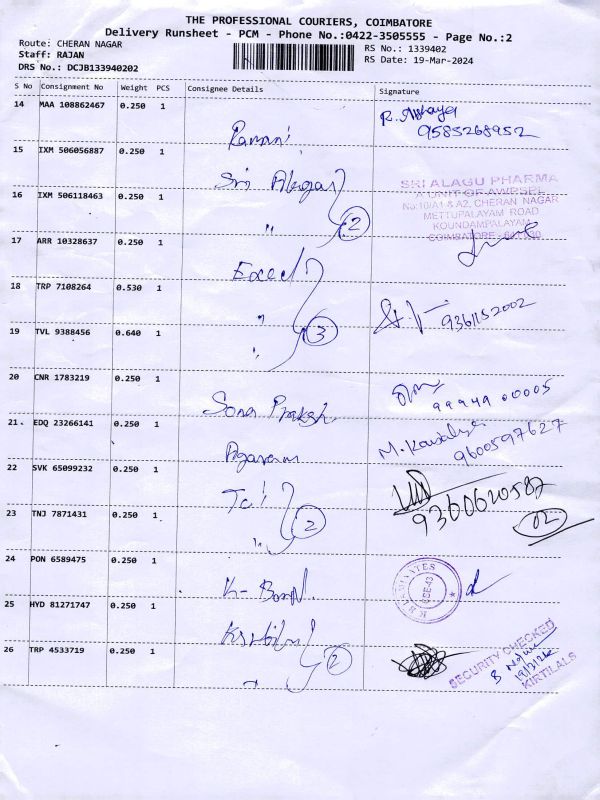 THE PROFESSIONAL COURIERS, COIMBATORE
Delivery Runsheet - PCM - Phone No.:0422-3505555 - Page No.:2
Route: CHERAN NAGAR
Staff: RAJAN
DRS No.: DCJB133940202
RS No.: 1339402
RS Date: 19-Mar-2024
S No Consignment No Weight PCS Consignee Details Signature
14 MAA 108862467 0.250 1 Ramani
9585268952
15 IXM 506056887 0.250 1 Sri Alagar
SRI ALAGU PHARMA
No:10/A1 & A2, CHERAN NAGAR
METTUPALAYAM ROAD
KOUNDAMPALAYAM
16 IXM 506118463 0.250 1 " 2
17 ARR 10328637 0.250 1 Excel
18 TRP 7108264 0.530 1 " 3
9361152002
19 TVL 9388456 0.640 1 "
20 CNR 1783219 0.250 1 Sona Prakash
99949 00005
21. EDQ 23266141 0.250 1 Agaram
M. Kousalya
9600597627
22 SVK 65099232 0.250 1
9360620587
02
23 TNJ 7871431 0.250 1 " 2
24 PON 6589475 0.250 1
25 HYD 81271747 0.250 1
26 TRP 4533719 0.250 1 " 2
SECURITY CHECKED
19/3/24
KIRTILALS